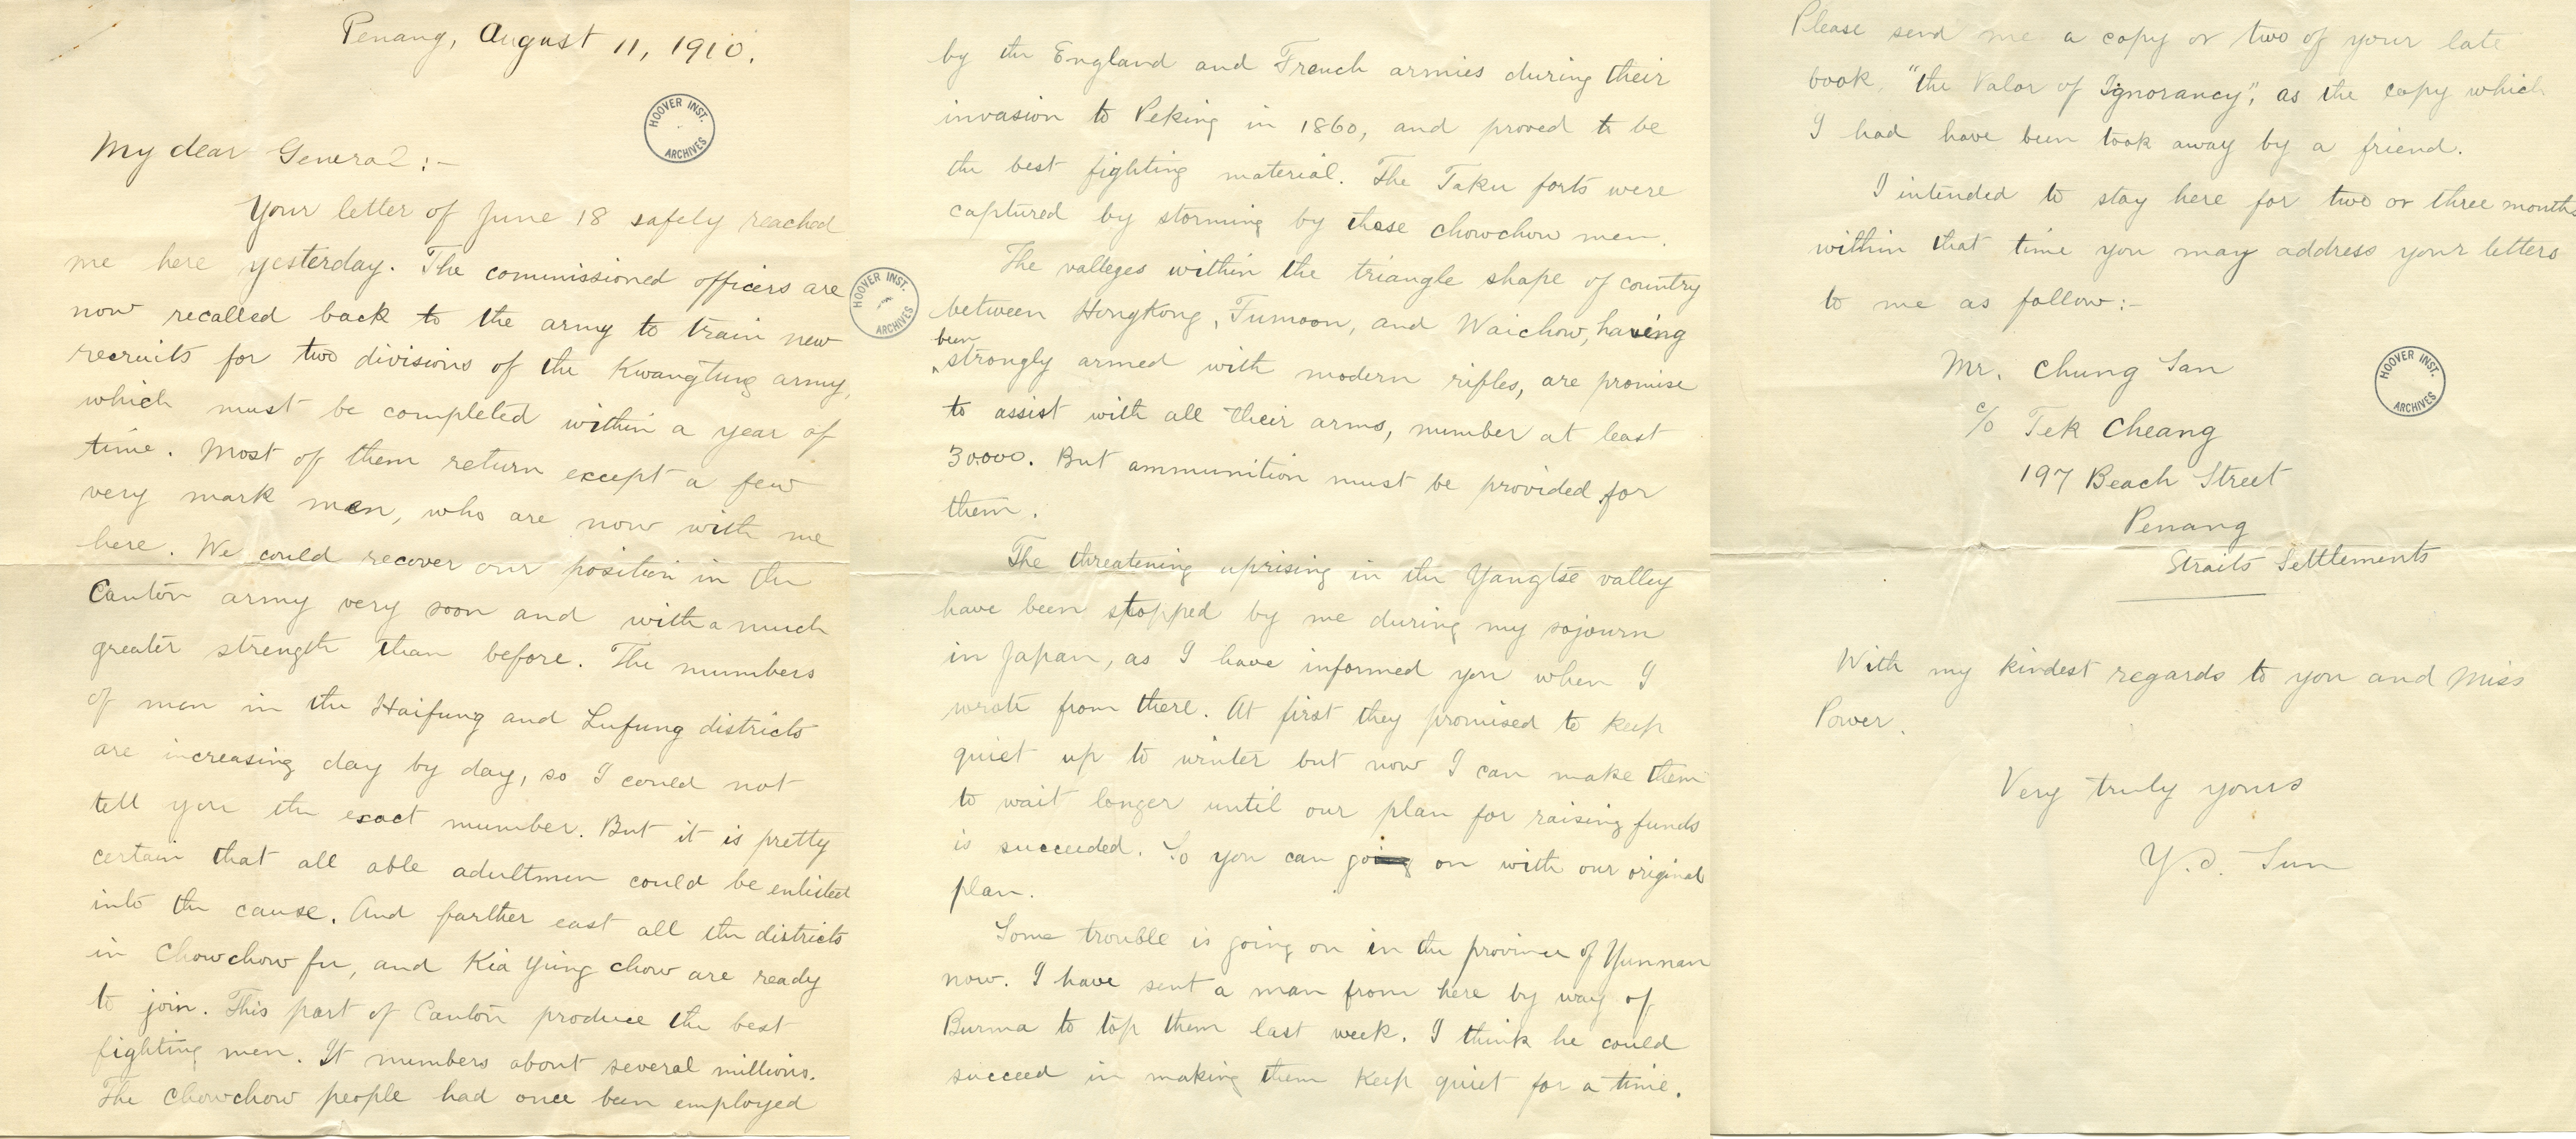 Penang, August 11, 1910.
HOOVER INST. ARCHIVES
My dear General :-
Your letter of June 18 safely reached
me here yesterday. The commissioned officers are
now recalled back to the army to train new
recruits for two divisions of the Kwangtung army,
which must be completed within a year of
time. Most of them return except a few
very mark men, who are now with me
here. We could recover our position in the
Canton army very soon and with a much
greater strength than before. The numbers
of men in the Haifung and Lufung districts
are increasing day by day, so I could not
tell you the exact number. But it is pretty
certain that all able adultmen could be enlisted
into the cause. And farther east all the districts
in Chowchow fu, and Kia Ying chow are ready
to join. This part of Canton produce the best
fighting men. It numbers about several millions.
The Chowchow people had once been employed
HOOVER INST. ARCHIVES
by the England and French armies during their
invasion to Peking in 1860, and proved to be
the best fighting material. The Taku forts were
captured by storming by these chowchow men.
The valleges within the triangle shape of country
between Hongkong, Fumoon, and Waichow, having
been strongly armed with modern rifles, are promise
to assist with all their arms, number at least
30000. But ammunition must be provided for
them.
The threatening uprising in the Yangtse valley
have been stopped by me during my sojourn
in Japan, as I have informed you when I
wrote from there. At first they promised to keep
quiet up to winter but now I can make them
to wait longer until our plan for raising funds
is succeeded. So you can go on with our original
plan.
Some trouble is going on in the province of Yunnan
now. I have sent a man from here by way of
Burma to top them last week. I think he could
succeed in making them keep quiet for a time.
Please send me a copy or two of your late
book, "the Valor of Ignorancy", as the copy which
I had have been took away by a friend.
I intended to stay here for two or three months
within that time you may address your letters
to me as follow:-
Mr. Chung San
c/o Tek Cheang
197 Beach Street
Penang
Straits Settlements
HOOVER INST. ARCHIVES
With my kindest regards to you and Miss
Power.
Very truly yours
Y. S. Sun